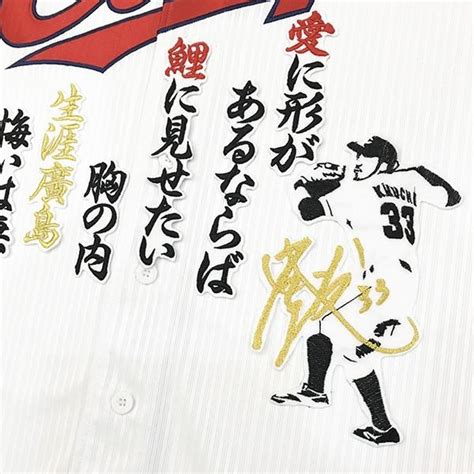 愛に形が
あるならば
鯉に見せたい
胸の内
生涯廣島
悔いは
KIKUCHI
33
33